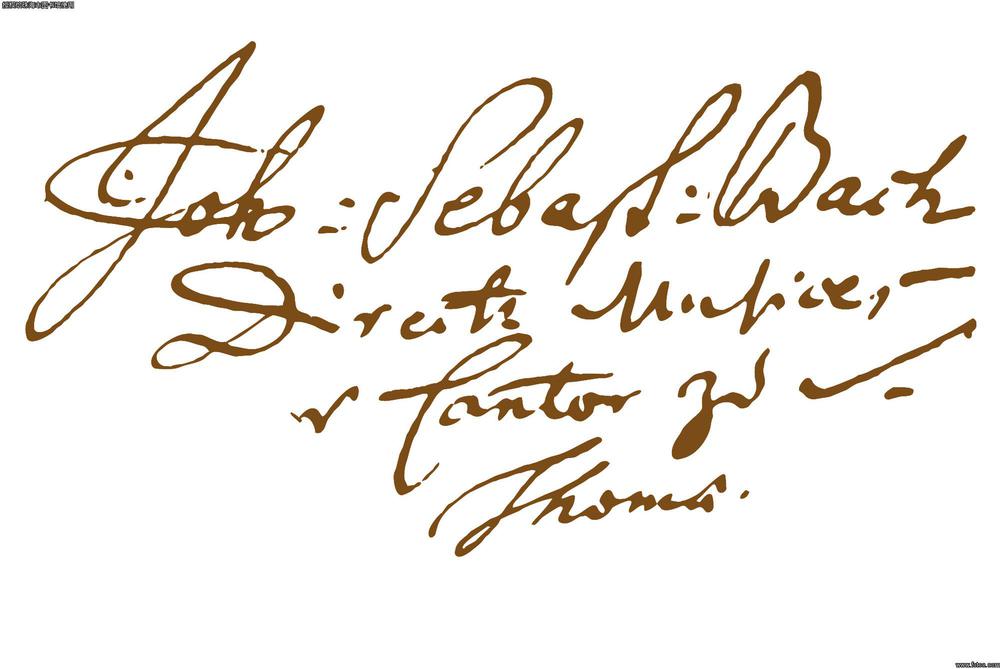 Joh: Sebast: Bach
Direct: Musices,
Cantor zu
Thomas.
www.fotoe.com